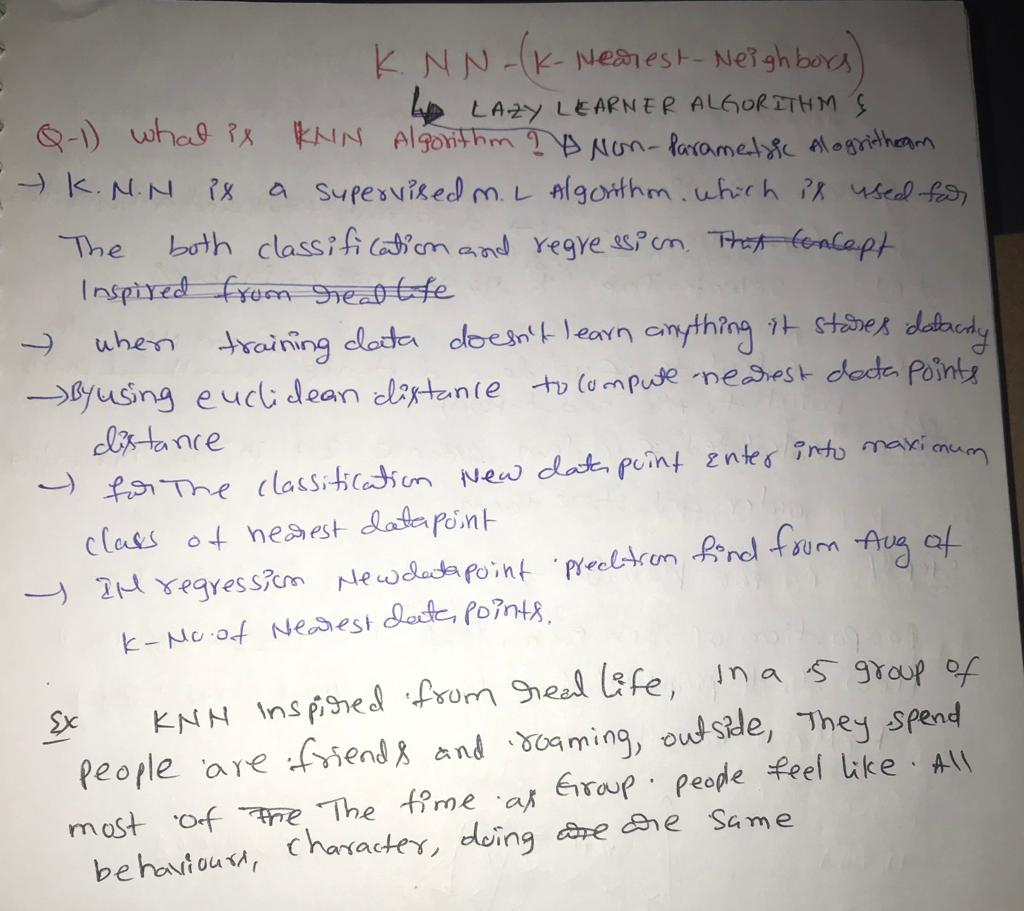 K.NN-(K-Nearest-Neighbors)
↳ LAZY LEARNER ALGORITHM &
Q-1) what is KNN Algorithm? → Non-Parametric Alogrithoam
→ K.N.N is a supervised M.L Algorithm. which is used for
The both classification and regression. That Concept
Inspired from real life
→ when training data doesn't learn anything it stores dataonly
→ By using euclidean distance to compute nearest data points
distance
→ for The classification New data point Enter into maximum
class of nearest datapoint
→ IN regression Newdatapoint predction find from Avg of
K-No.of Nearest data points.
Ex KNN Inspired from real life, In a 5 group of
people are friends and roaming, outside, They spend
most of The The time as Group. people feel like. All
behaviours, Character, doing are are same